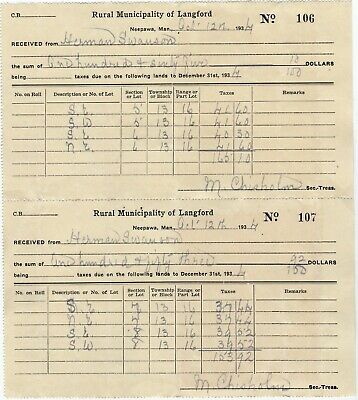 C.B. Rural Municipality of Langford Nº 106
Neepawa, Man., Oct 12th 1934
RECEIVED FROM Herman Swanson
the sum of One hundred & sixty five 10/100 DOLLARS
being taxes due on the following lands to December 31st, 1934
No. on Roll Description or No. of Lot Section or Lot Township or Block Range or Part Lot Taxes Remarks
S.E. 5 13 16 41 60
S.W. 5 13 16 41 60
S.E. 6 13 16 40 30
N.E. 6 13 16 41 60
165 10
M. Chisholm Sec.-Treas.
C.B. Rural Municipality of Langford Nº 107
Neepawa, Man., Oct 12th 1934
RECEIVED FROM Herman Swanson
the sum of One hundred & fifty three 92/100 DOLLARS
being taxes due on the following lands to December 31st, 1934
No. on Roll Description or No. of Lot Section or Lot Township or Block Range or Part Lot Taxes Remarks
S.E. 7 13 16 37 44
N.E. 7 13 16 37 44
S.E. 8 13 16 39 52
S.W. 8 13 16 39 52
153 92
M. Chisholm Sec.-Treas.